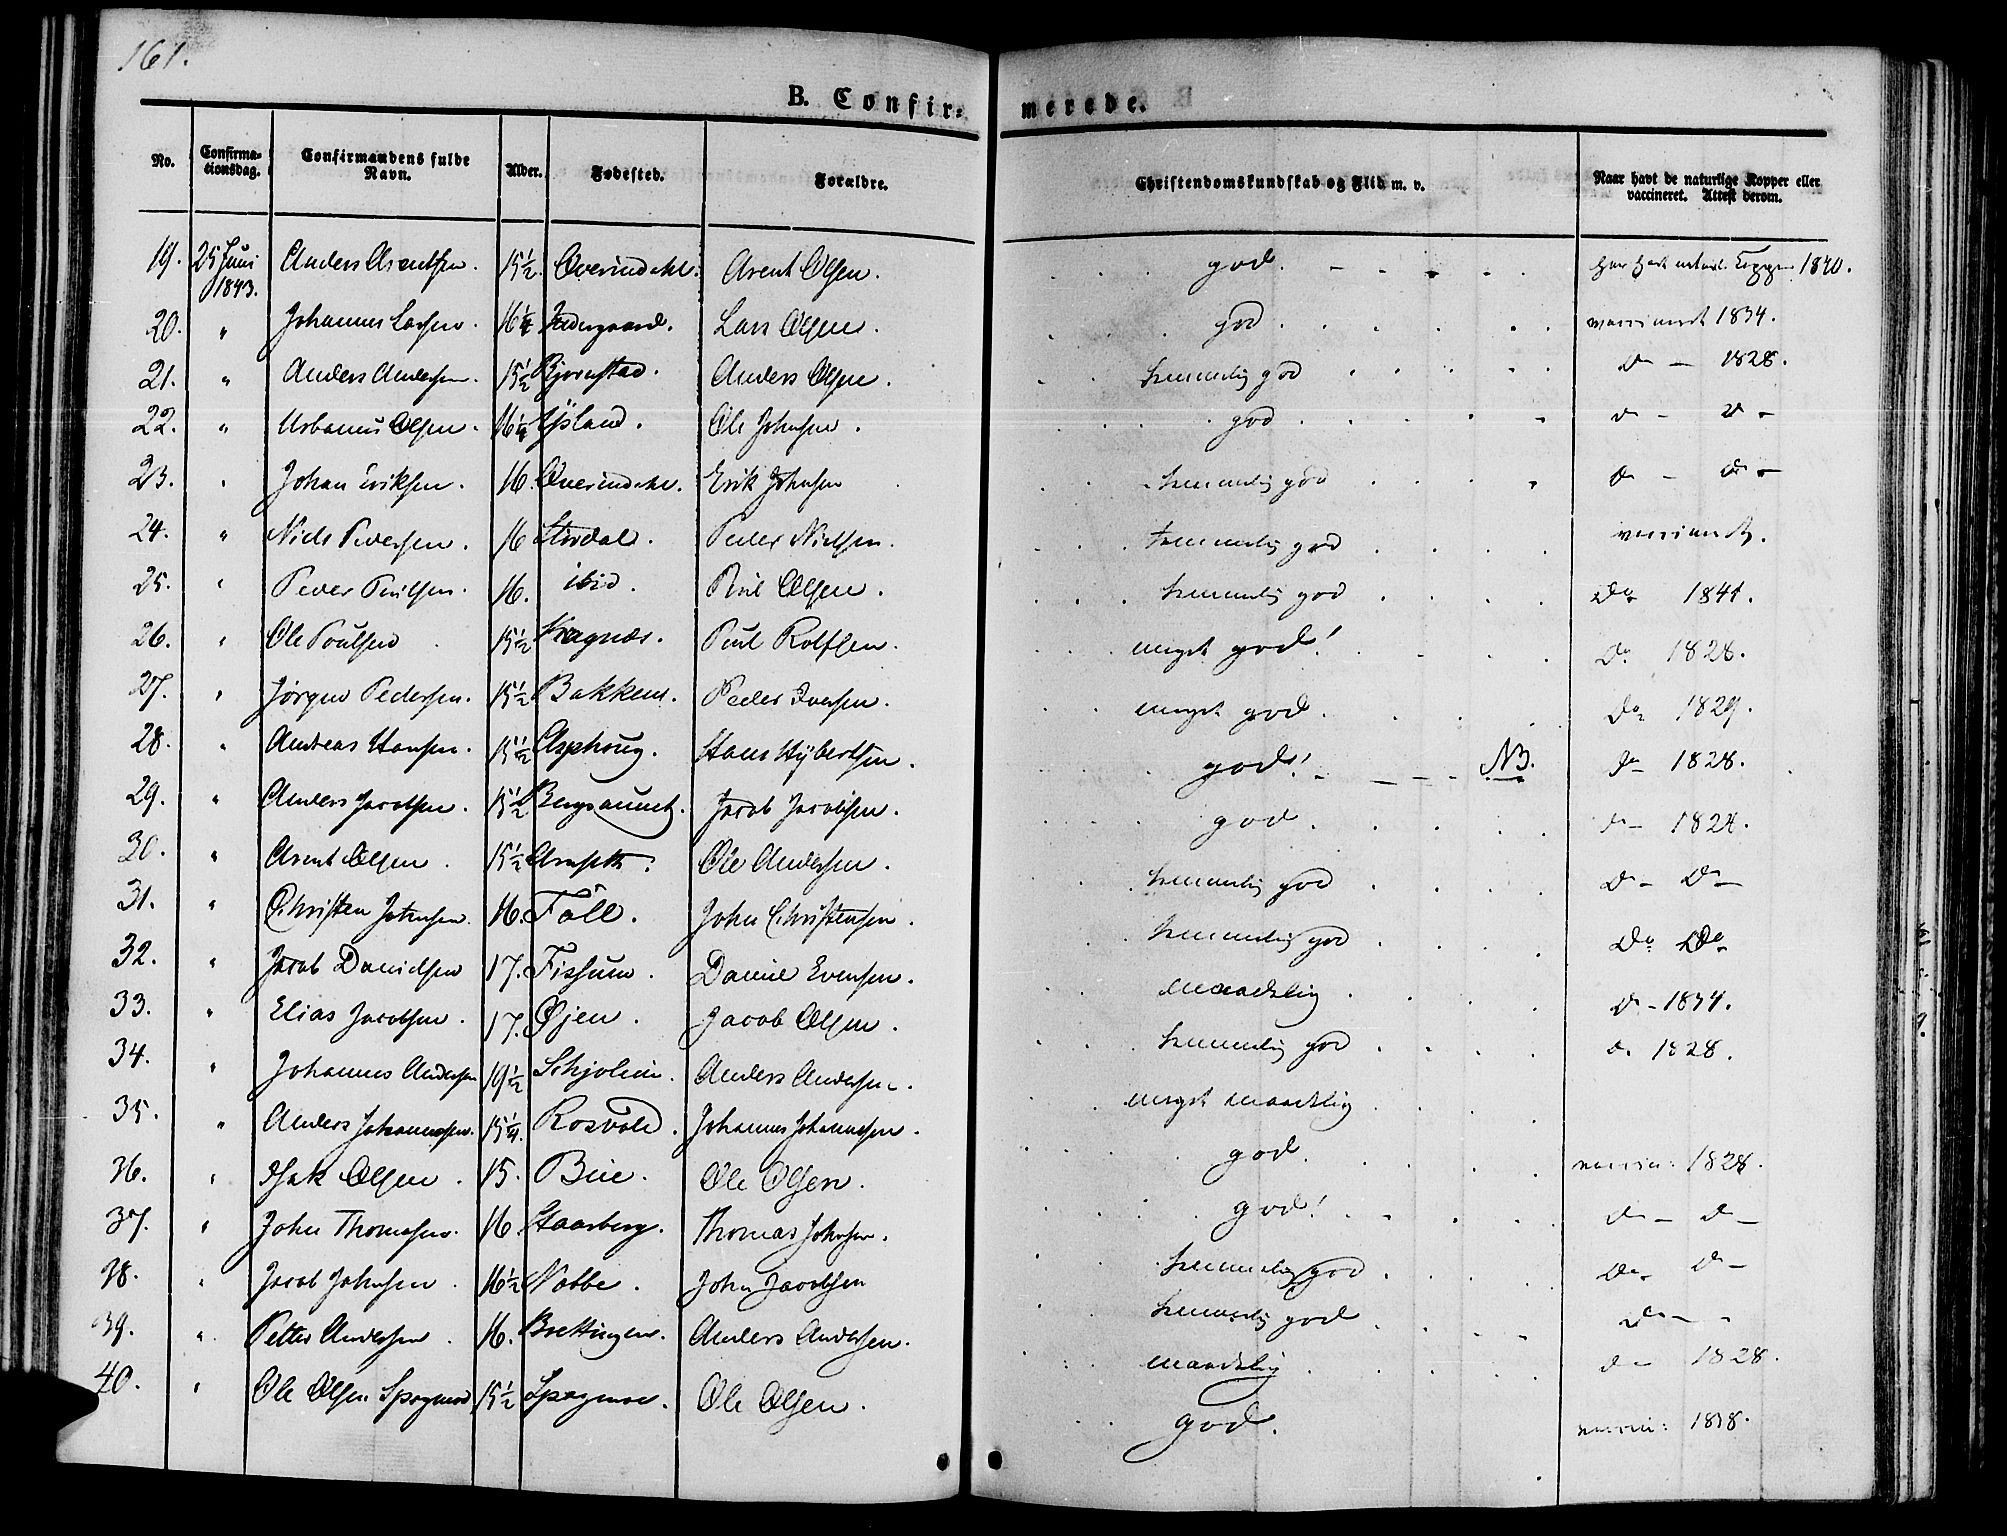 161.
B. Confir-merede.
No. Confirmationsdag. Confirmandens fulde Navn. Alder. Fødested. Forældre. Christendomskundskab og Flid m. v. Naar havt de naturlige Kopper eller vaccineret. Attest derom.
19. 25 Juni 1843. Anders Arentsen. 15 1/2. Overindahl. Arent Olsen. god. har havt naturl. Kopper 1840.
20. " Johannes Larsen. 16 1/4 Lars Olsen. god vaccineret 1834.
21. " Anders Andersen. 15 1/2 Bjørnstad. Anders Olsen. temmelig god do - 1828.
22. " Urbanus Olsen. 16 1/4 Ole Johnsen. god do - do -
23. " Johan Eriksen. 16. Overindahl. Erik Johnsen temmelig god do - do -
24. " Niels Pedersen. 16 Stordal. Peder Nielsen. temmelig god vaccineret.
25. " Peder Poulsen. 16. ibid. Poul Olsen. temmelig god do 1841.
26. " Ole Poulsen 15 1/2 Kragnæs. Poul Rolfsen. meget god! do 1828.
27. " Jørgen Pedersen. 15 1/2 Bakken. Peder Iversen. meget god. do 1829.
28. " Andreas Hansen. 15 1/2 Asphoug. Hans Hybertsen. god! NB. do 1828.
29. " Anders Jacobsen. 15 1/2 Bergsaunet. Jacob Jacobsen. god. do - 1828.
30. " Arent Olsen. 15 1/2 Ole Andersen. temmelig god do - do -
31. " Christen Johnsen. 16. Foll. John Christensen. temmelig god do do
32. " Jacob Danielsen 17. Fissum. Daniel Evensen. maadelig do - 1834.
33. " Elias Jacobsen. 17. Øjen. Jacob Olsen. temmelig god do 1828.
34. " Johannes Andersen 19 1/2 Schjolein. Anders Andersen. meget maadelig
35. " Anders Johannesen. 15 1/4. Rosvold. Johannes Johannesen. god. vaccin: 1828.
36. " Isak Olsen. 15. Bue. Ole Olsen. god! do - do -
37. " John Thomasen. 16 Staarberg. Thomas Johnsen. temmelig god do. do -
38. " Jacob Johnsen. 16 1/2 Nobbe. John Jacobsen temmelig god do - -
39. " Petter Andersen. 16. Brettingen. Anders Andersen. maadelig do - 1828.
40. " Ole Olsen Spagmoe 15 1/2 Spagmoe. Ole Olsen. god. vaccin: 1838.